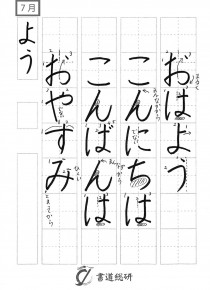 7月
おはよう
こんにちは
こんばんは
おやすみ
よう
書道総研